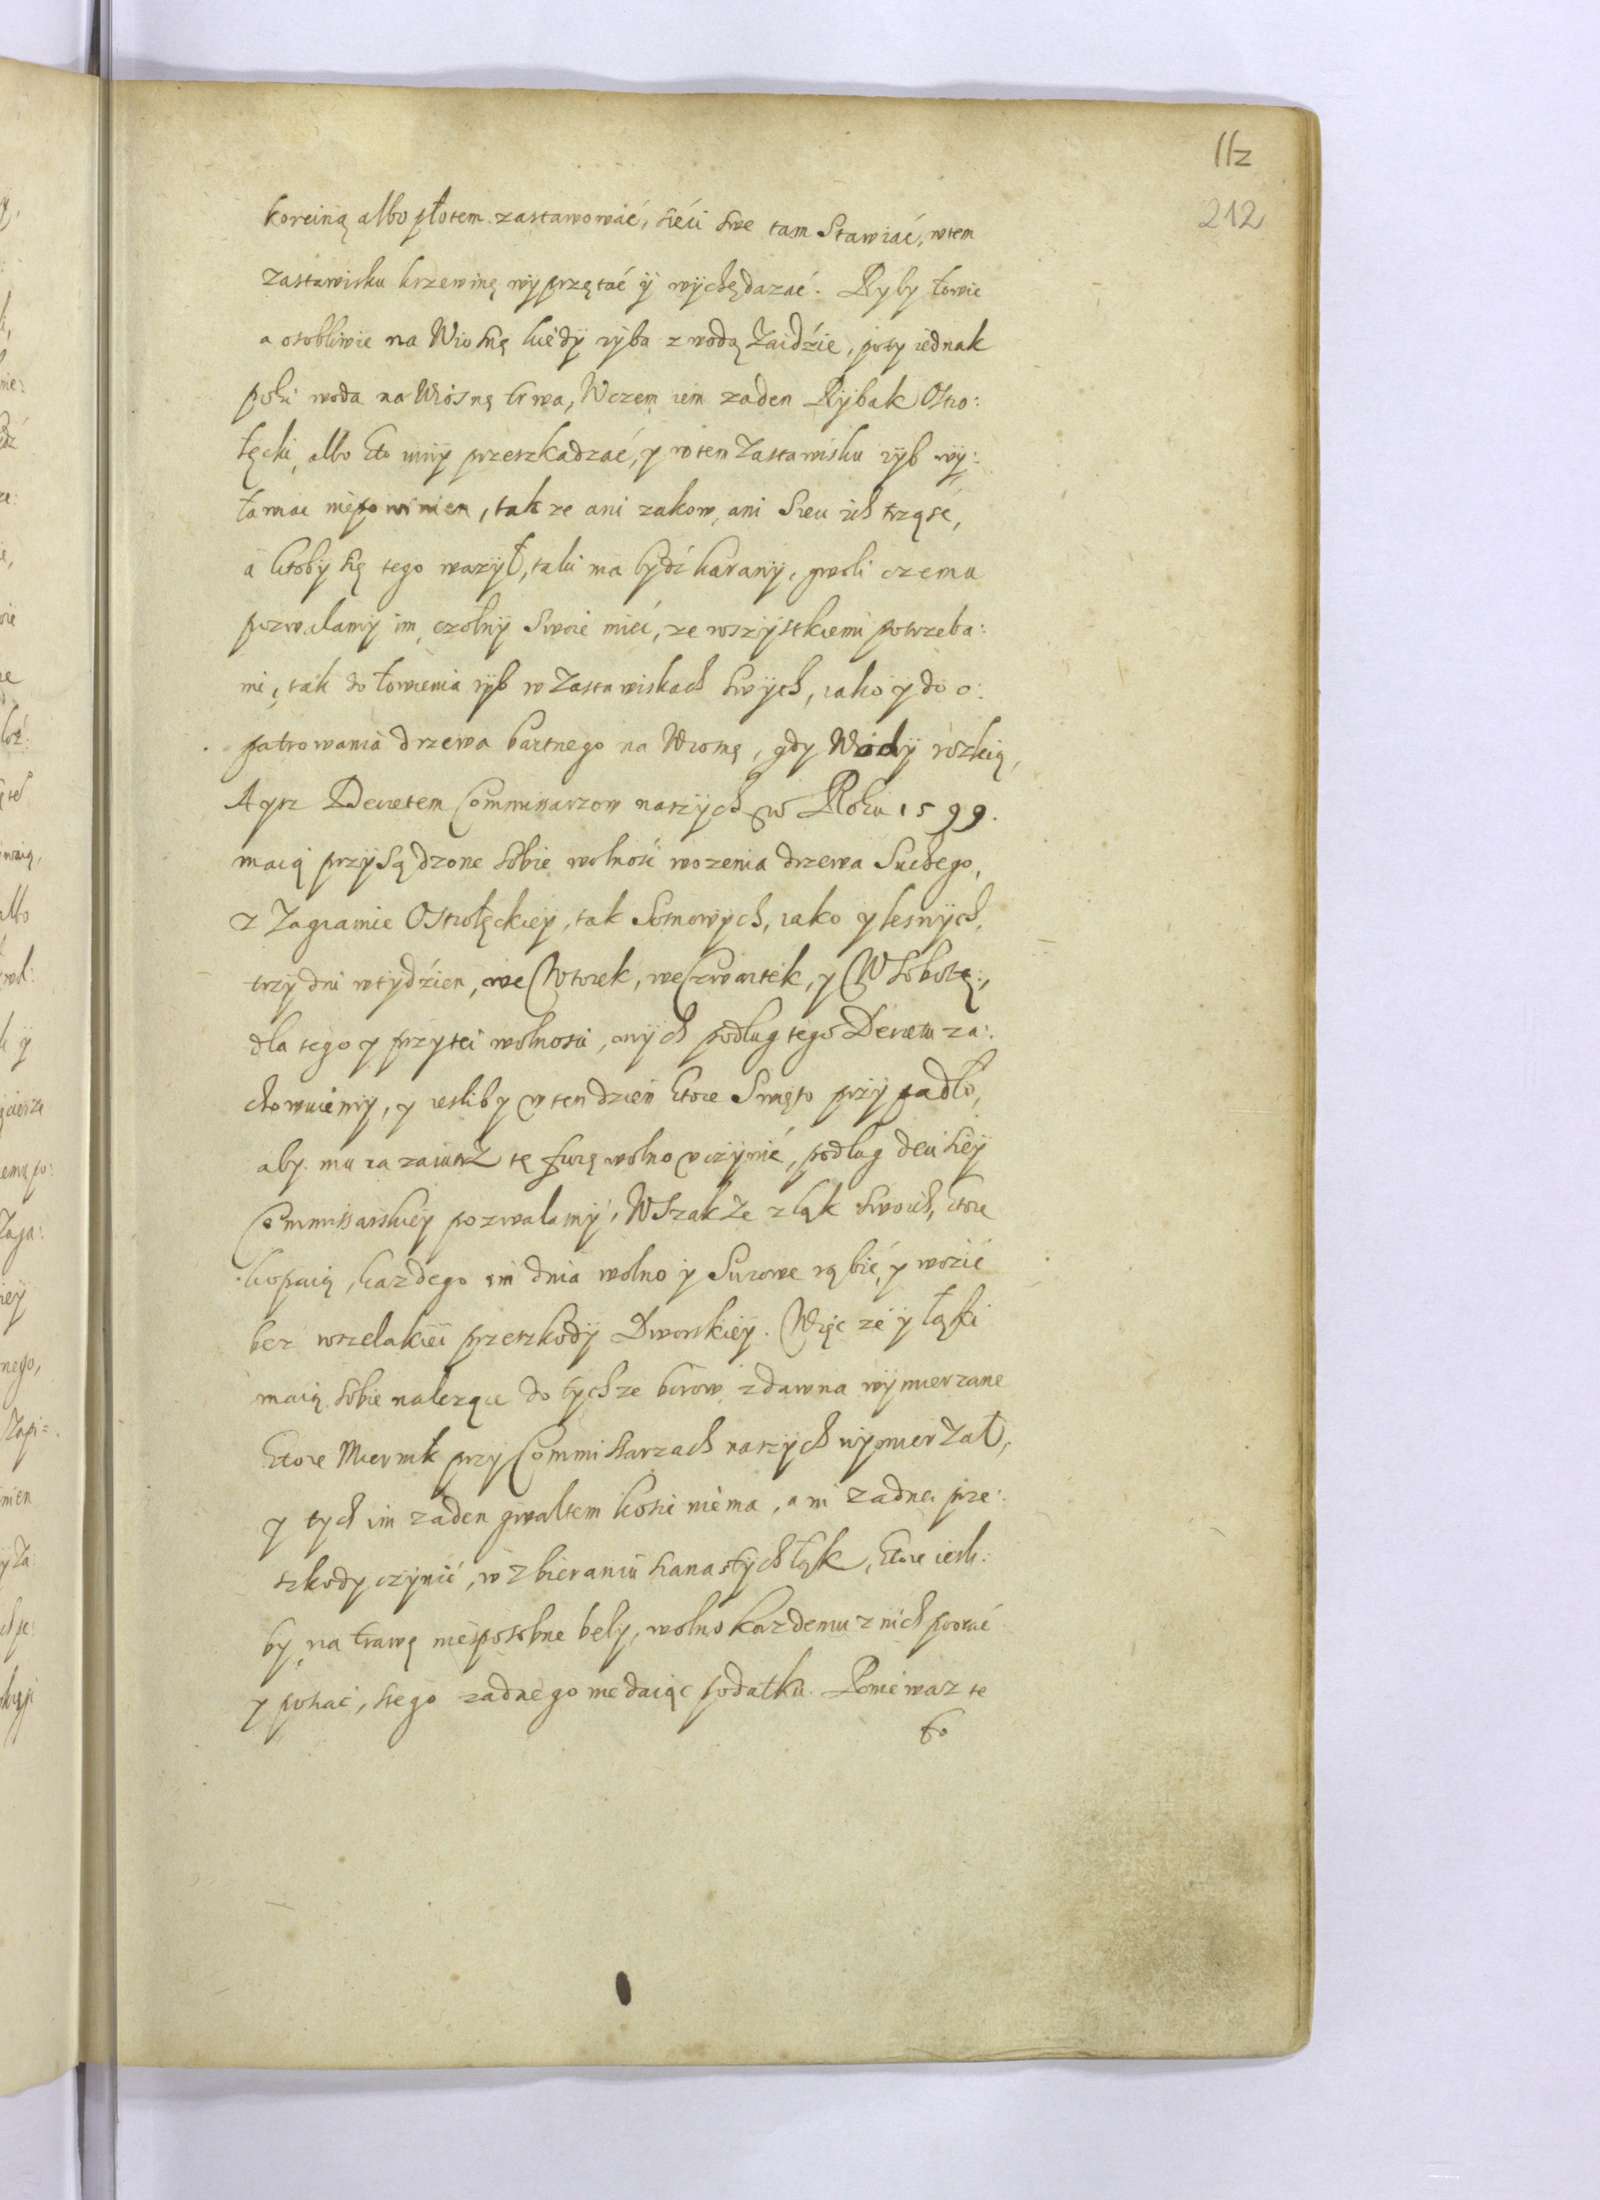 112
212
korciną albo płotem zastawować, sieci swe tam Stawiać, wtem
zastawisku krzewinę wyprzętać ÿ wychędazać. Ryby łowic
a osobliwie na Wiosnę kiedÿ ryba z wodą Zaidźie, poty iednak
poki woda na Wiosnę trwa, Wczem iem zaden Rÿbak Ostro:
łęcki, albo kto inny przeszkadzać, y wtem Zastawisku rÿb wÿ:
łamac niepowinien, tak ze ani zakow, ani Sieci ich trząsć,
a ktoby się tego wazył, taki ma bydź karany, gwoli czemu
pozwalamÿ im czolnÿ Swoie mieć, ze wszystkiemi potrzeba:
mi, tak do łowienia ryb w Zastawiskach swÿch, iako y do o:
patrowania drzewa bartnego na Wiosnę, gdy Wodÿ rozleią,
A ysz Decretem Commissarzow naszÿch w Roku 1599.
maią przysądzone sobie wolność wozenia drzewa Suchego,
z Zagraınie Ostrołęckieÿ, tak Sosnowych, iako y lesnÿch,
trzy dni wtydzien, we Wtorek, we Czwartek, y W Sobotę,
dla tego y przy tei wolnosci, onych podlug tego Decretu za:
chowuiemy, y iesliby w ten dzien ktore Swięto przypadło,
aby mu na zaiutrz tę furę wolno uczynić, podlug deciſiey
Commissarskieÿ pozwalamÿ, WSzakZe z łąk swoich, ktore
kopaią, kazdego im dnia wolno y Surowe rąbić, y wozić
bez wszelakieÿ przeszkodÿ Dworskieÿ. Więc ze y łąki
maią sobie nalezące do tychze borow zdawna wymierzane
ktore Miernik przy Commissarzach naszych wymierzał,
y tych im zaden gwaltem kosic niema, ani zadnei prze:
szkody czynić, w Zbieraniu siana s tych łąk, ktore iesli:
by na trawę niesposobne bely, wolno kazdemu z nich poorać
y posiać, s tego zadnego nie daiąc podatku. Poniewaz te
to